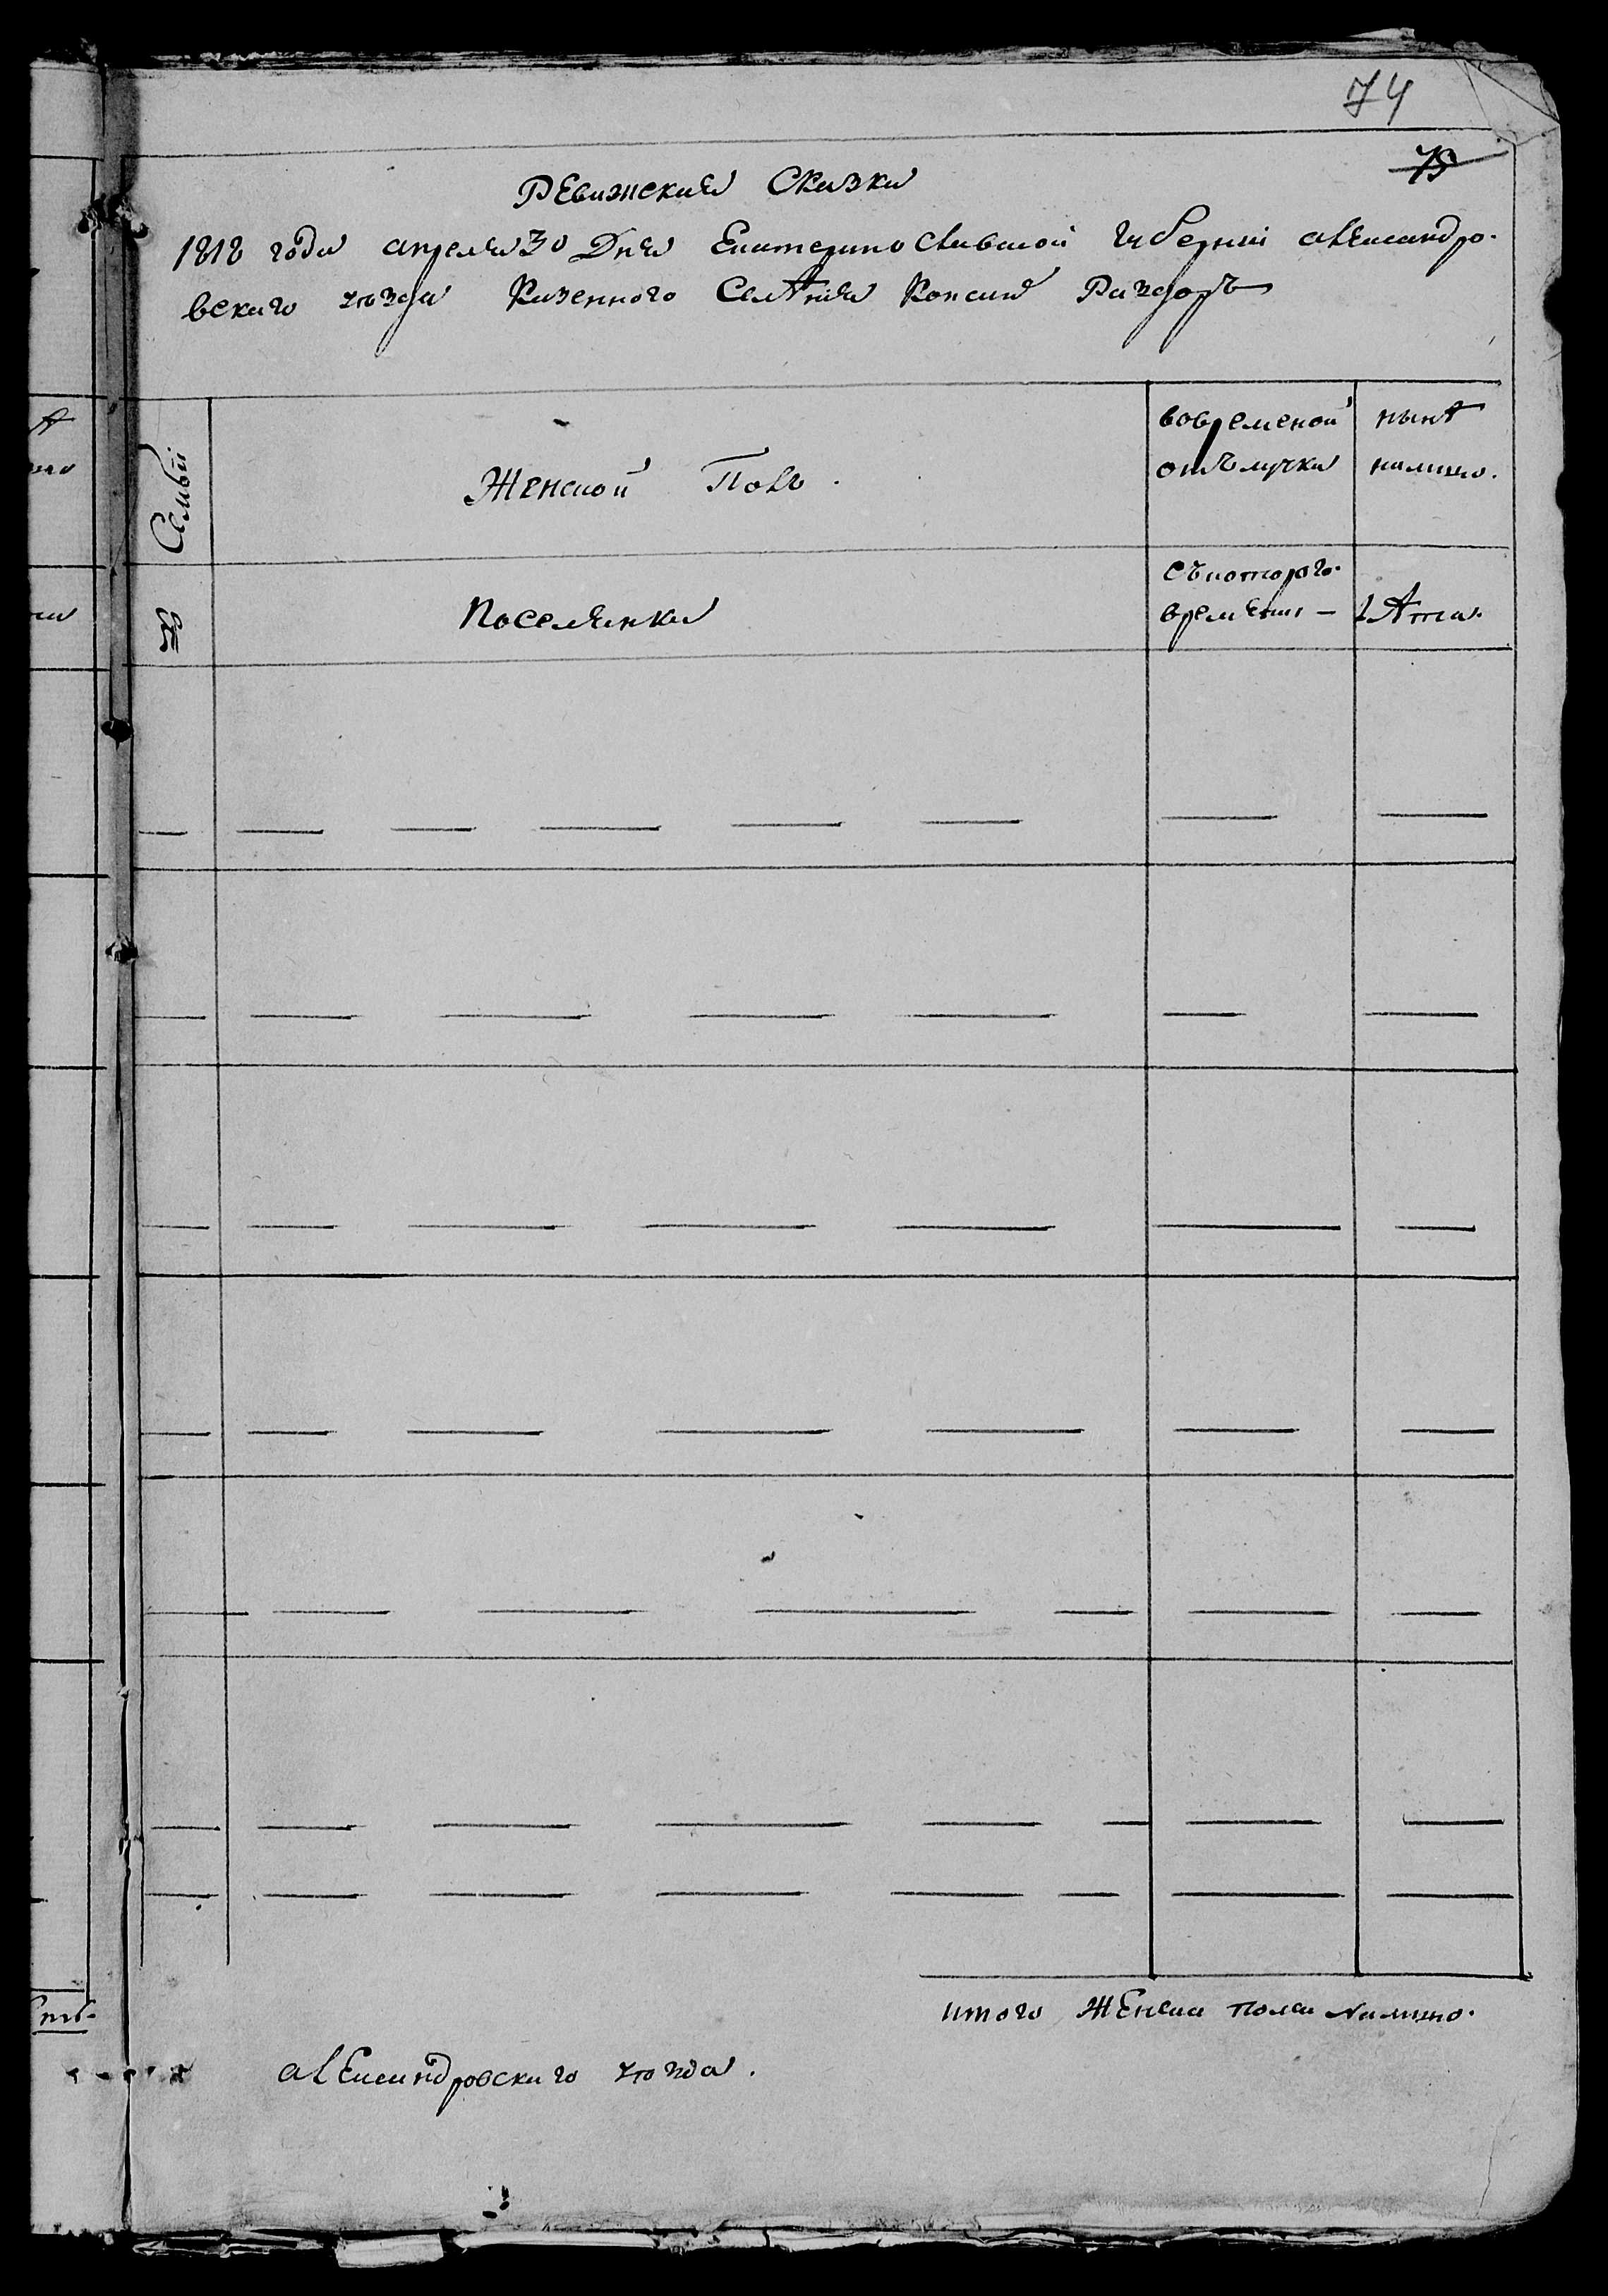 74
75
Ревизская Сказка
1818 года апреля 30 Дня Екатерино Славской губернии александро-
вскаго уѣзда Казенного Селѣния Конские Раздоръ
Семьи
Женской Полъ.
вовременой
отълучки
нынѣ
налицо.
№
Поселянки
съкоторого
времени —
Лѣта.
итого Женска пола налицо.
алЕксандровскаго уѣзда.